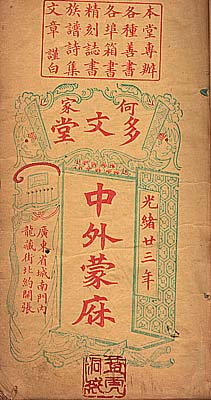 本堂專辦
各種善書
各埠箱書
精刻誌書
族譜詩集
文章謹白
何家
多文堂
光緒廿三年
中外蒙麻
廣東省城南門內
龍藏街北約開張